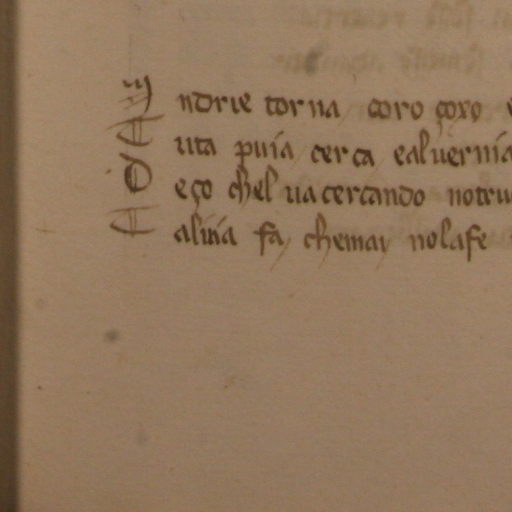 ndrie torna coro çoxo
uta p uia cerca ealuernia
eço chel ua cercando notru
aluia fa chemay nolafe